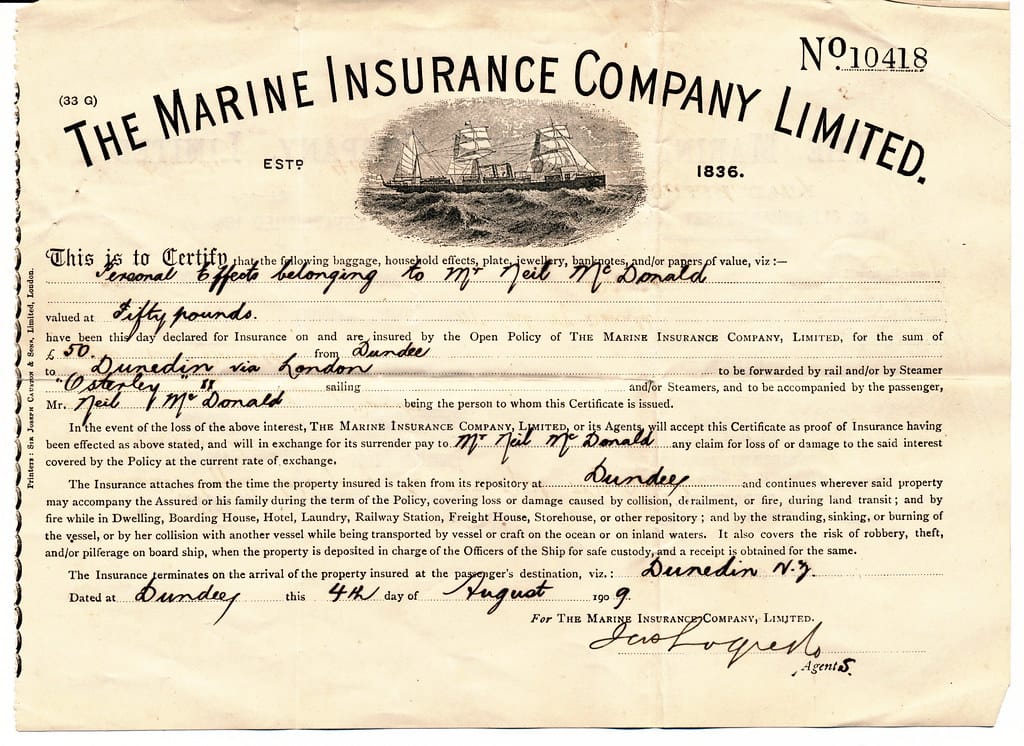 No 10418
(33 G)
THE MARINE INSURANCE COMPANY LIMITED.
ESTD 1836.
This is to Certify that the following baggage, household effects, plate, jewellery, banknotes, and/or papers of value, viz :—
Personal Effects belonging to Mr Neil McDonald
valued at Fifty pounds.
have been this day declared for Insurance on and are insured by the Open Policy of THE MARINE INSURANCE COMPANY, LIMITED, for the sum of
£ 50. from Dundee
to Dunedin via London to be forwarded by rail and/or by Steamer
"Osterley" sailing and/or Steamers, and to be accompanied by the passenger,
Mr. Neil McDonald being the person to whom this Certificate is issued.
In the event of the loss of the above interest, THE MARINE INSURANCE COMPANY, LIMITED, or its Agents, will accept this Certificate as proof of Insurance having
been effected as above stated, and will in exchange for its surrender pay to Mr Neil McDonald any claim for loss of or damage to the said interest
covered by the Policy at the current rate of exchange.
The Insurance attaches from the time the property insured is taken from its repository at Dundee and continues wherever said property
may accompany the Assured or his family during the term of the Policy, covering loss or damage caused by collision, derailment, or fire, during land transit ; and by
fire while in Dwelling, Boarding House, Hotel, Laundry, Railway Station, Freight House, Storehouse, or other repository ; and by the stranding, sinking, or burning of
the vessel, or by her collision with another vessel while being transported by vessel or craft on the ocean or on inland waters. It also covers the risk of robbery, theft,
and/or pilferage on board ship, when the property is deposited in charge of the Officers of the Ship for safe custody, and a receipt is obtained for the same.
The Insurance terminates on the arrival of the property insured at the passenger's destination, viz. : Dunedin N.Z.
Dated at Dundee this 4th day of August 1909.
For THE MARINE INSURANCE COMPANY, LIMITED.
Agents.
Printers : SIR JOSEPH CAUSTON & SONS, Limited, London.